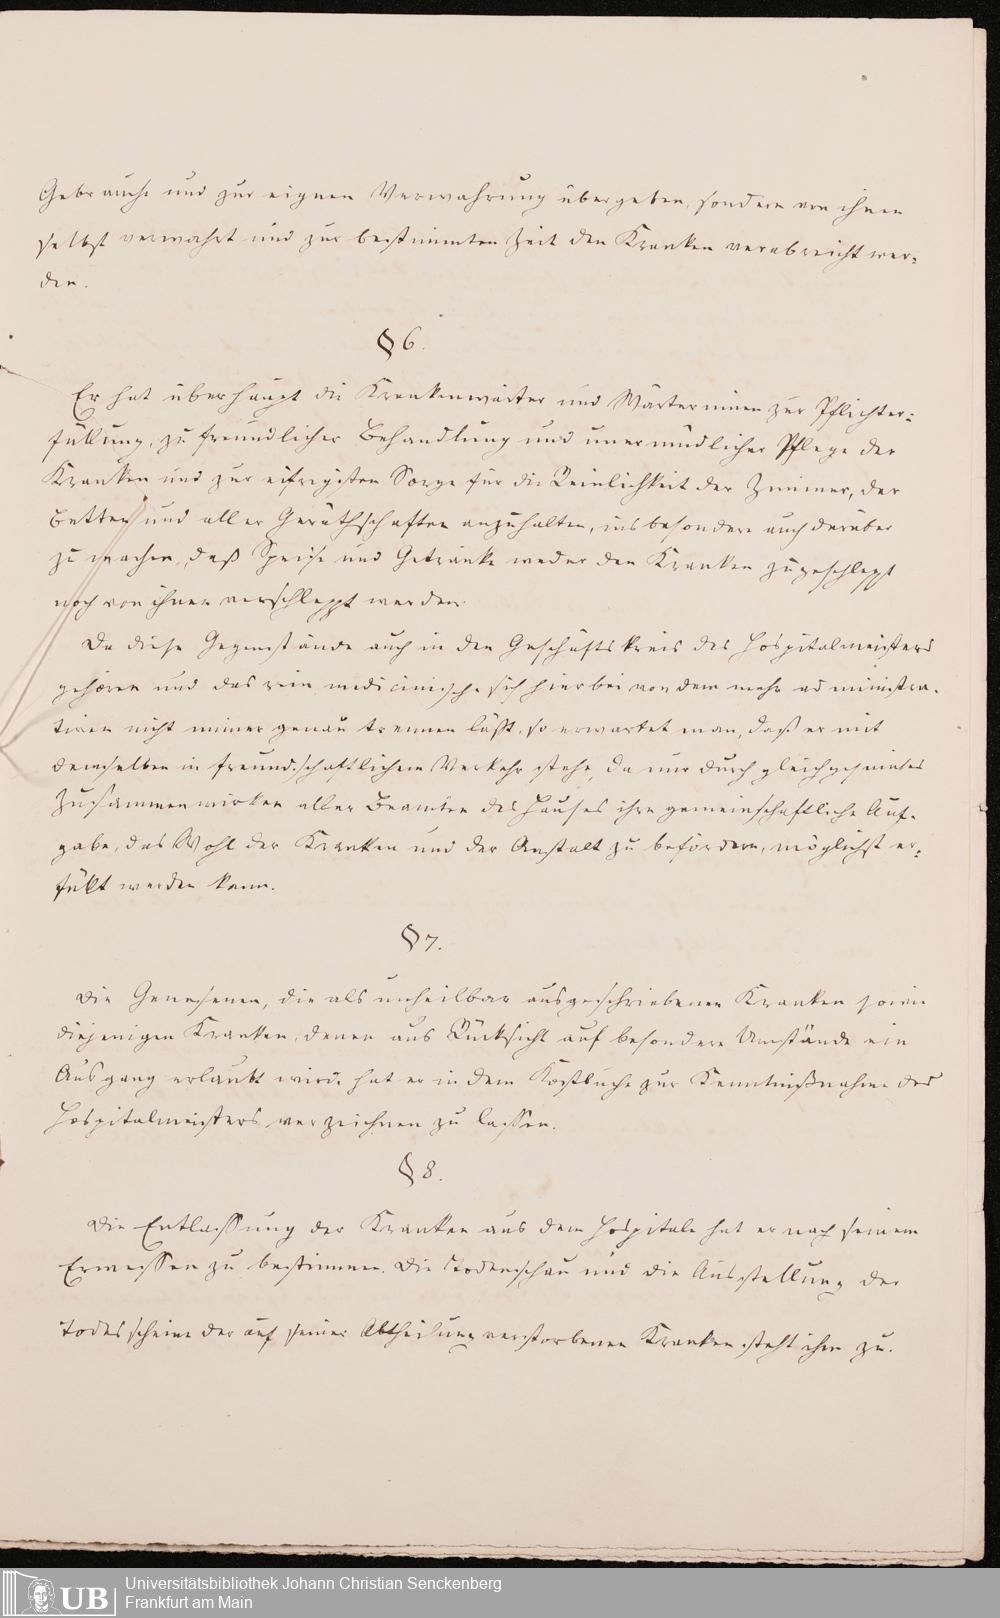 Gebrauche und zur eignen Verwahrung übergeben, sondern von ihnen
selbst verwahrt und zur bestimmten Zeit den Kranken verabreicht wer-
den.
§ 6.
Er hat überhaupt die Krankenwärter und Wärterinnen zur Pflichter-
füllung, zu freundlicher Behandlung und unermüdlicher Pflege der
Kranken und zur eifrigsten Sorge für die Reinlichkeit der Zimmer, der
Betten und aller Geräthschaften anzuhalten, insbesondere auch darüber
zu wachen, daß Speise und Getränke weder den Kranken zugeschleppt
noch von ihnen verschleppt werden.
Da diese Gegenstände auch in den Geschäftskreis des Hospitalmeisters
gehören und das rein medicinische sich hierbei von dem mehr administra-
tiven nicht immer genau trennen läßt, so erwartet man, daß er mit
demselben in freundschaftlichem Verkehr stehe, da nur durch gleichgesinntes
Zusammenwirken aller Beamten des Hauses ihre gemeinschaftliche Auf-
gabe, das Wohl der Kranken und der Anstalt zu befördern, möglichst er-
füllt werden kann.
§ 7.
Die Genesenen, die als unheilbar ausgeschriebenen Kranken sowie
diejenigen Kranken, denen aus Rücksicht auf besondere Umstände ein
Ausgang erlaubt wird, hat er in dem Kostbuche zur Kenntnißnahme des
Hospitalmeisters verzeichnen zu lassen.
§ 8.
Die Entlassung der Kranken aus dem Hospitale hat er nach seinem
Ermessen zu bestimmen. Die Todenschau und die Ausstellung der
Todesscheine der auf seiner Abtheilung verstorbenen Kranken steht ihm zu.
UB
Universitätsbibliothek Johann Christian Senckenberg
Frankfurt am Main